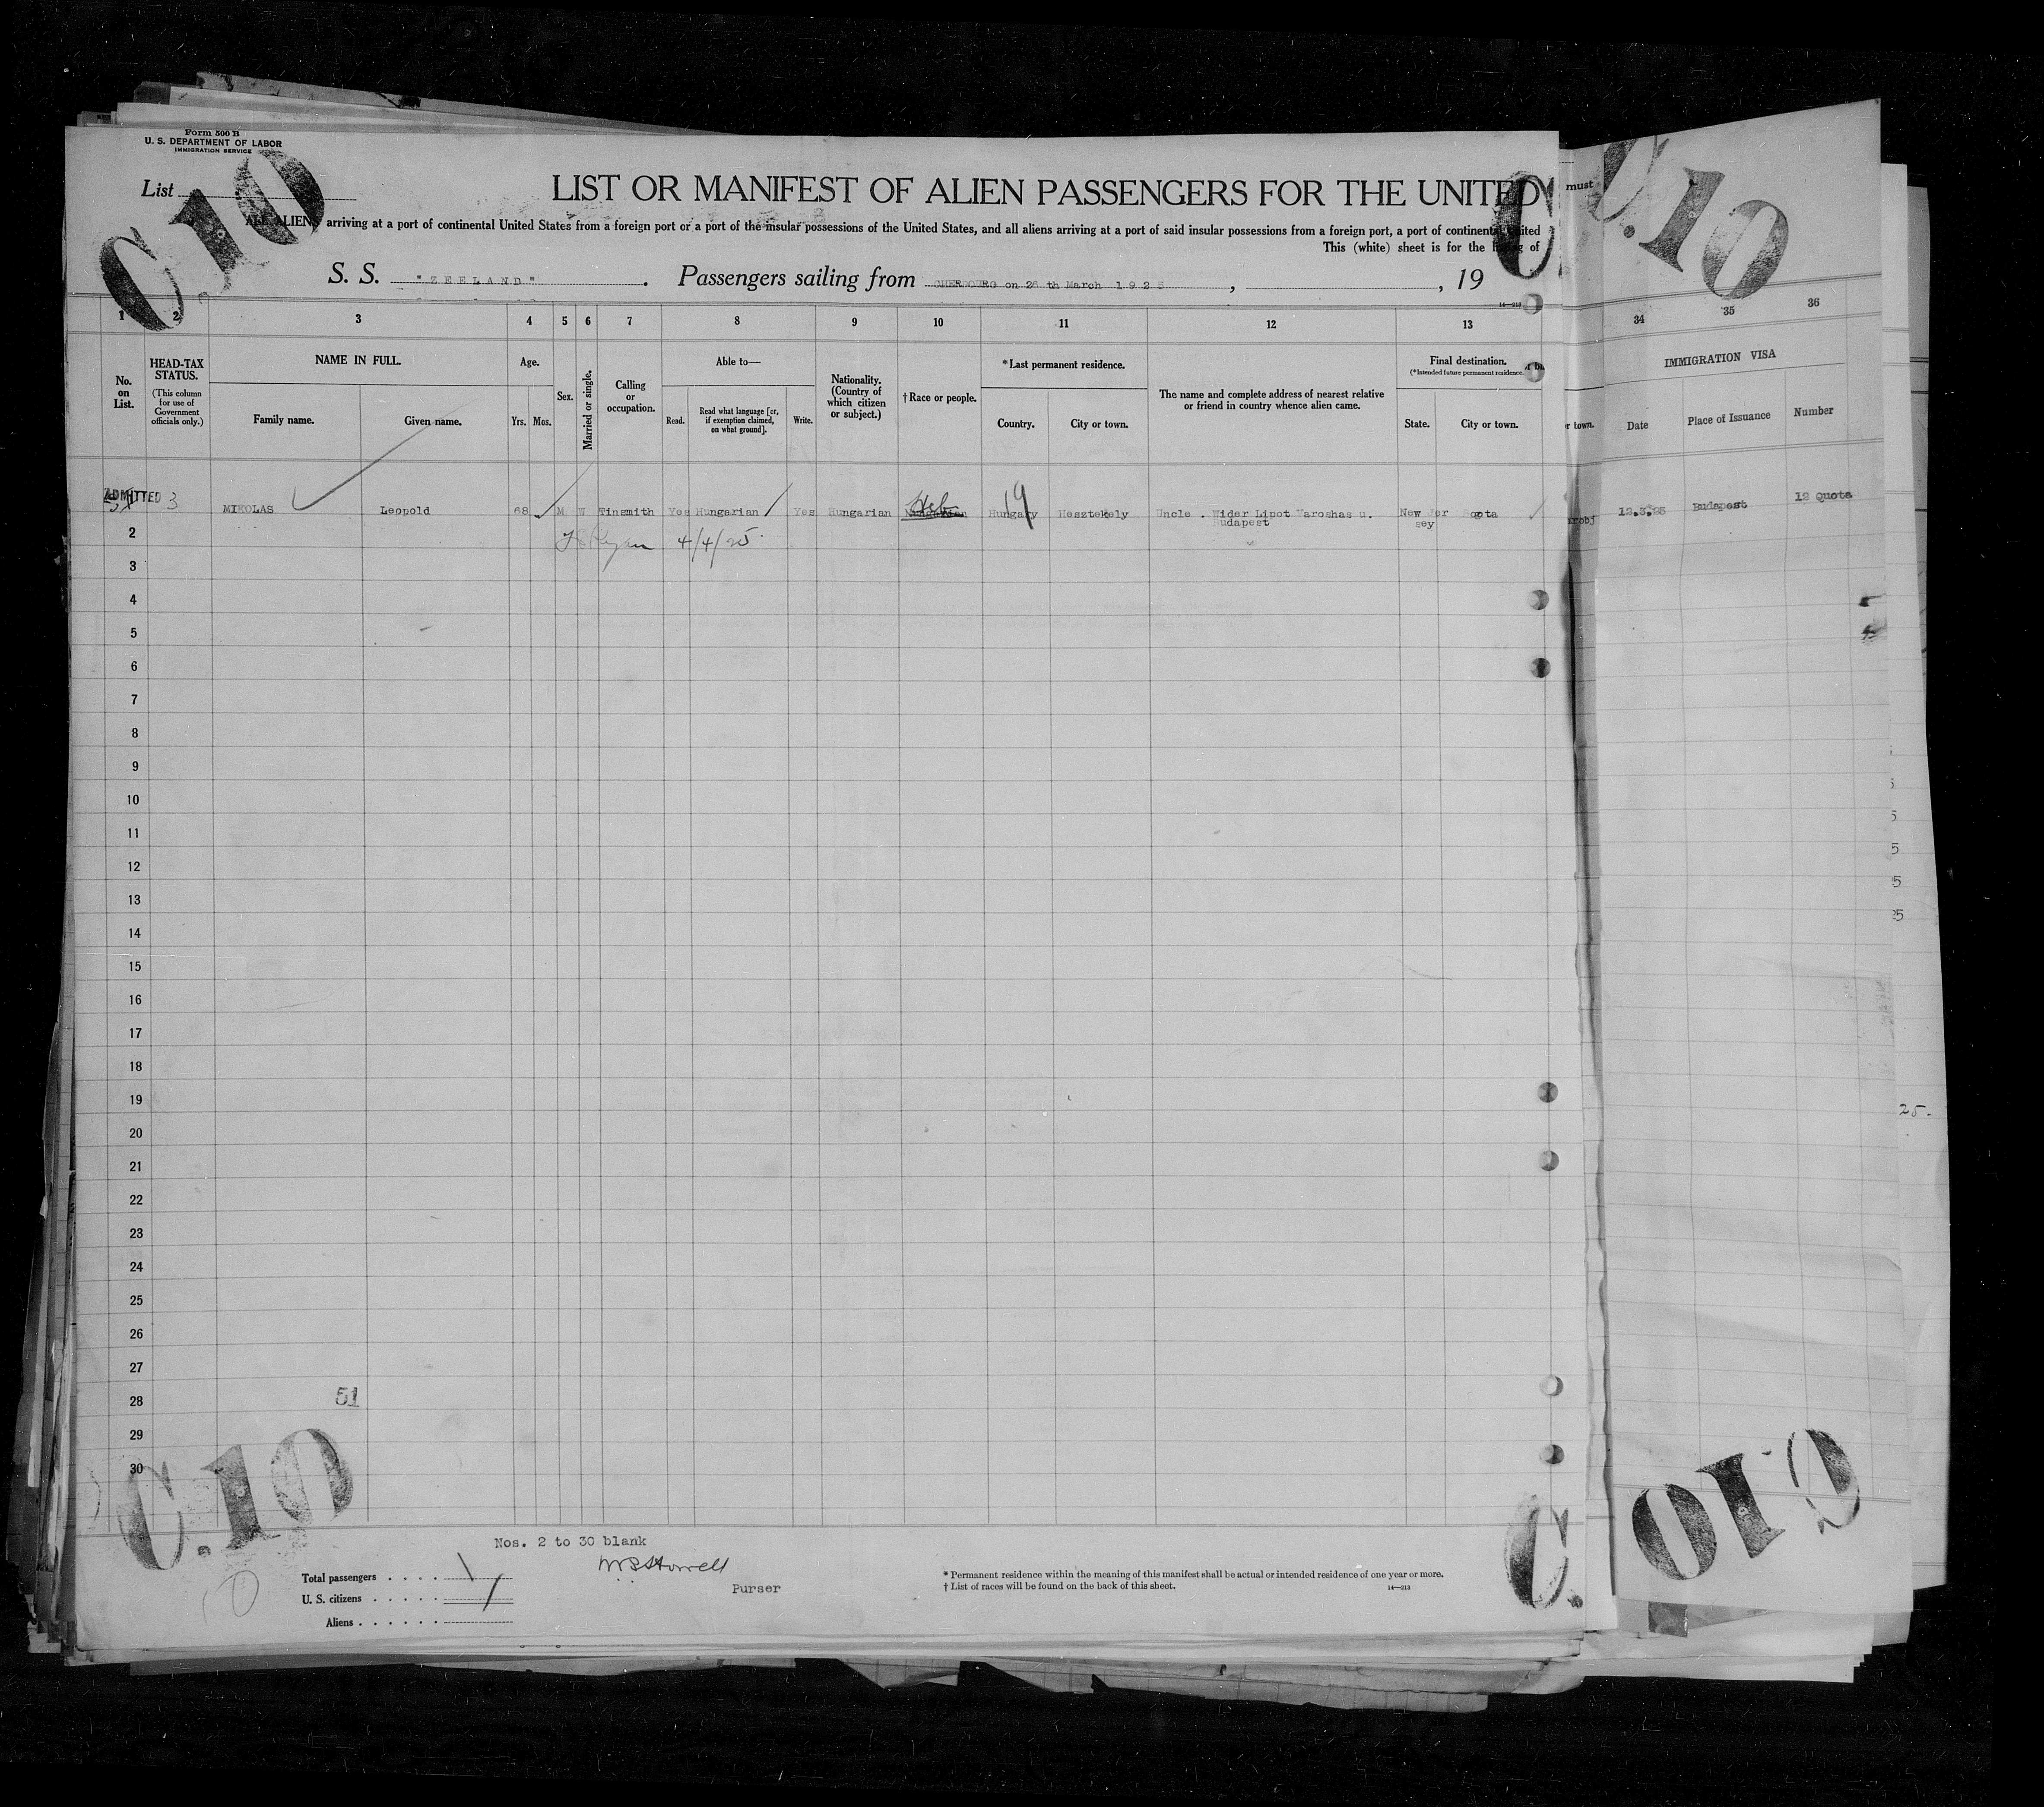 Form 500 B
U. S. DEPARTMENT OF LABOR
IMMIGRATION SERVICE
C.10
List
LIST OR MANIFEST OF ALIEN PASSENGERS FOR THE UNITED
ALL ALIENS arriving at a port of continental United States from a foreign port or a port of the insular possessions of the United States, and all aliens arriving at a port of said insular possessions from a foreign port, a port of continental United
This (white) sheet is for the listing of
S. S. "ZEELAND". Passengers sailing from CHERBOURG on 26 th March 1925, , 19
14—213
must
C.10
C.
1 2 3 4 5 6 7 8 9 10 11 12 13 34 35 36
No. on List.
HEAD-TAX STATUS.
(This column for use of Government officials only.)
NAME IN FULL.
Family name. Given name.
Age.
Yrs. Mos.
Sex.
Married or single.
Calling or occupation.
Able to—
Read. Read what language [or, if exemption claimed, on what ground]. Write.
Nationality. (Country of which citizen or subject.)
†Race or people.
*Last permanent residence.
Country. City or town.
The name and complete address of nearest relative or friend in country whence alien came.
Final destination.
(*Intended future permanent residence.)
State. City or town.
r town.
IMMIGRATION VISA
Date Place of Issuance Number
ADMITTED 3 MIKOLAS Leopold 68 M W Tinsmith Yes Hungarian Yes Hungarian Heb Hungarian Hungary Hesztekely Uncle . Wider Lipot Varoshas u. New Jer 12.3.25 Budapest 12 Quota
Budapest sey
2 Ryan 4/4/25.
3
4
5
6
7
8
9
10
11
12
13
14
15
16
17
18
19
20
21
22
23
24
25
26
27
28 51
29
30
C.10
C.10
C.
25.
Nos. 2 to 30 blank
Total passengers . . . . 1
U. S. citizens . . . . .
Aliens . . . . . .
Purser
* Permanent residence within the meaning of this manifest shall be actual or intended residence of one year or more.
† List of races will be found on the back of this sheet.
14—213
10